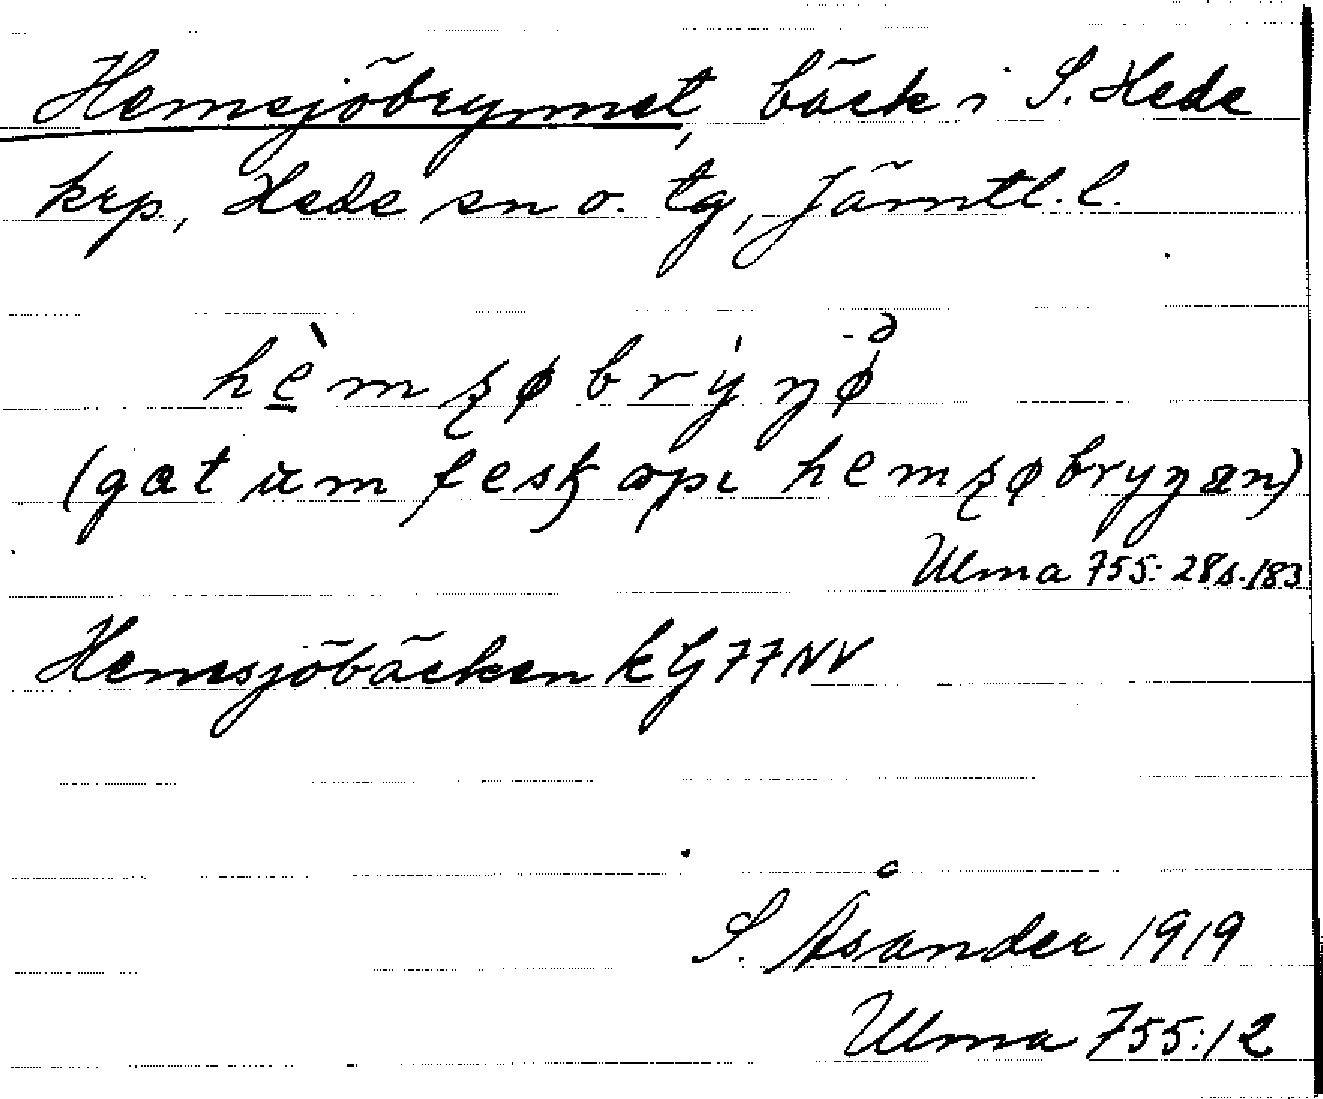 Hemsjöbrynnet, bäck i S. Hede
krp, Hede sn o. tg, Jämtl. l.
hè̲mʂøbrýŋø̊
(gat um feskapı hemʂøbryŋan)
Ulma 755: 28 s. 183
Hemsjöbäcken k G 77 NV
S. Åsander 1919
Ulma 755:12